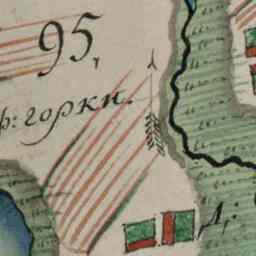 95,
ф: горки.
Д: